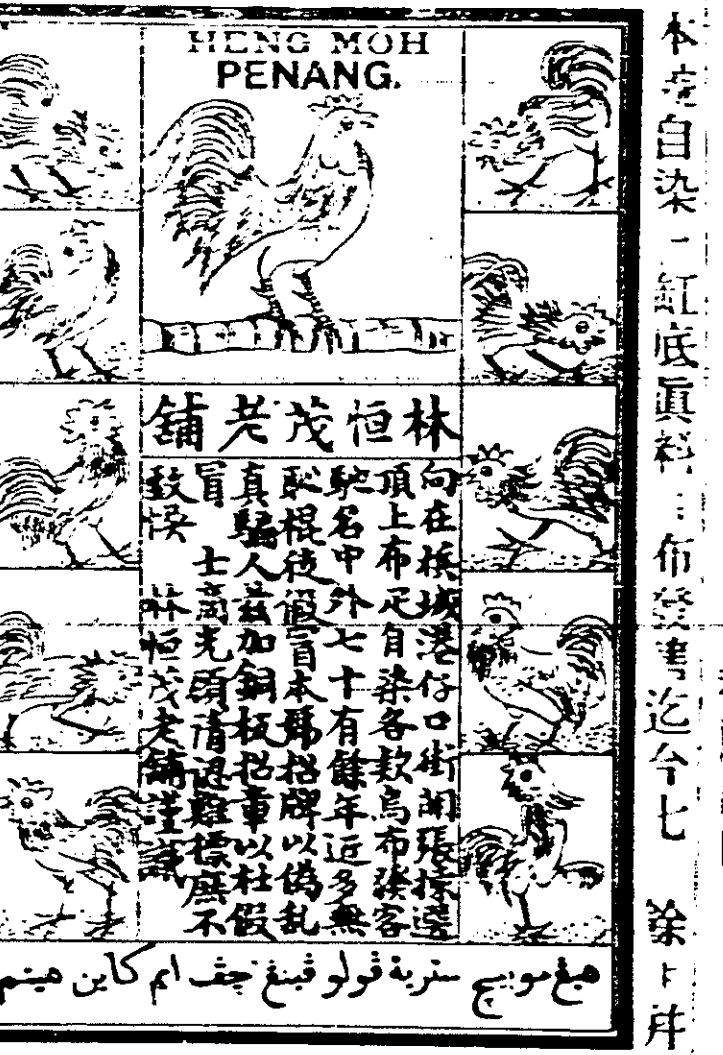 HENG MOH
PENANG.
林恒茂老舖
向在檳城港仔口街開張揀選
頂上布疋自染各款烏布發客
馳名中外七十有餘年近多無
恥棍徒假冒本號招牌以偽乱
真騙人茲加銅板招章以杜假
冒 士商光顧請認雞標庶不
致悞 林恒茂老舖謹識
هيڠ مو بيچ سترية ڤولو ڤينڠ چڤ ايم كاين هيتم
自染 缸底眞料 布發售迄今七